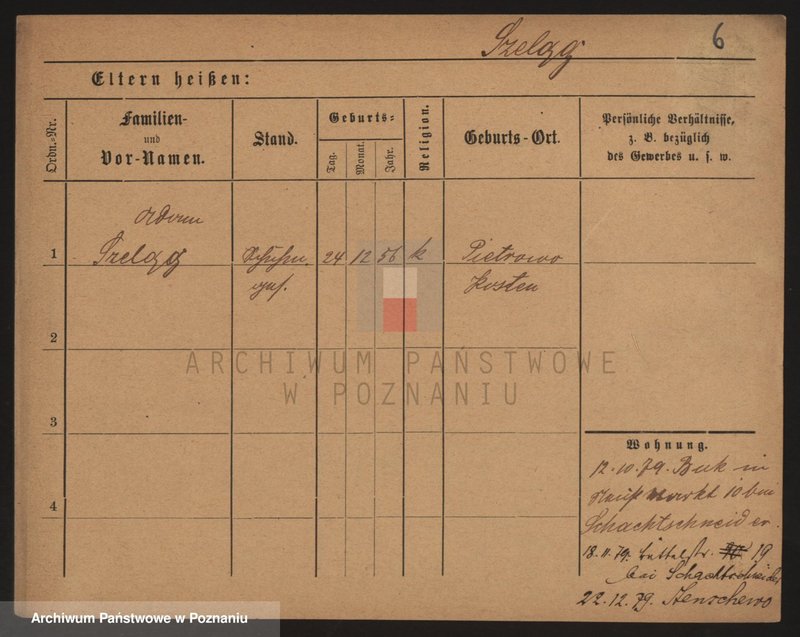 Szelgg 6
Eltern heißen:
Ordn.-Nr.
Familien-
und
Vor-Namen.
Stand.
Geburts-
Tag.
Monat.
Jahr.
Religion.
Geburts-Ort.
Persönliche Verhältnisse,
z. B. bezüglich
des Gewerbes u. s. w.
Adam
1 Szelgg 24 12 56 k Pietrowo
Kosten
2
3
4
Wohnung.
12.10.79. Buk in
Markt 10 bei
Schachtschneider.
18.11.79. Büttelstr. 19
bei Schachtschneider
22.12.79. Henschewo
ARCHIWUM PAŃSTWOWE
W POZNANIU
Archiwum Państwowe w Poznaniu